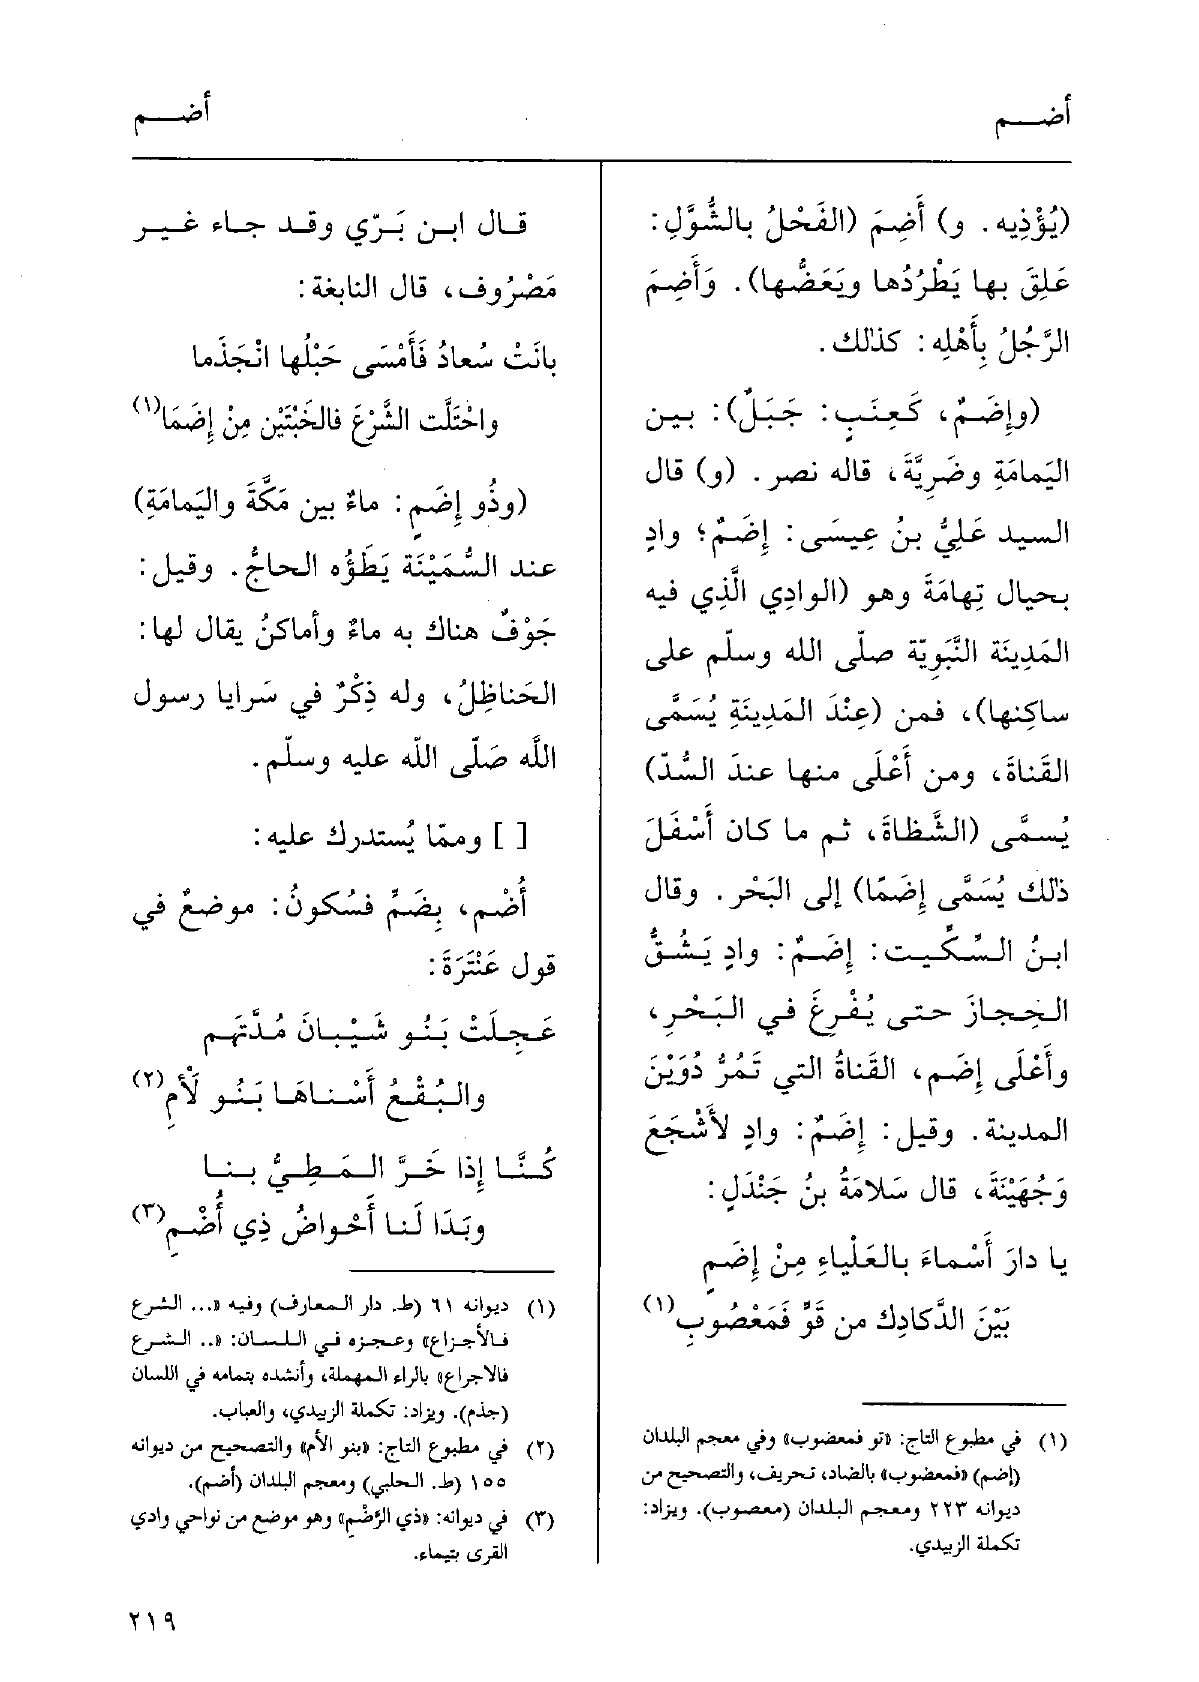 أضـــم
أضـــم
(يُؤْذِيه. و) أَضِمَ (الفَحْلُ بالشُّوَّلِ:
عَلِقَ بها يَطْرُدُها ويَعَضُّها). وَأَضِمَ
الرَّجُلُ بِأَهْلِه: كذلك.
(وإِضَمٌ، كَعِنَبٍ: جَبَلٌ): بين
اليَمامَةِ وضَرِيَّةَ، قاله نصر. (و) قال
السيد عَلِيُّ بنُ عِيسَى: إِضَمٌ؛ وادٍ
بحيال تِهامَةَ وهو (الوادِي الَّذِي فيه
المَدِينَة النَّبَوِيّة صلّى الله وسلّم على
ساكنها)، فمن (عِنْدَ المَدِينَةِ يُسَمَّى
القَناةَ، ومن أَعْلَى منها عندَ السُّدّ)
يُسمَّى (الشَّظاةَ، ثم ما كان أَسْفَلَ
ذلك يُسَمَّى إِضَمًا) إلى البَحْر. وقال
ابنُ السِّكِّيت: إِضَمٌ: وادٍ يَشُقُّ
الحِجازَ حتى يُفْرِغَ في البَحْرِ،
وأَعْلَى إِضَم، القَناةُ التي تَمُرُّ دُوَيْنَ
المدينة. وقيل: إِضَمٌ: وادٍ لأَشْجَعَ
وَجُهَيْنَةَ، قال سَلامَةُ بنُ جَنْدَلٍ:
يا دارَ أَسْماءَ بالعَلْياءِ مِنْ إِضَمٍ
بَيْنَ الدَّكادِك من قَوٍّ فَمَعْصُوبِ(١)
(١) في مطبوع التاج: «تو فمعضوب» وفي معجم البلدان
(إضم) «فمعضوب» بالضاد، تحريف، والتصحيح من
ديوانه ٢٢٣ ومعجم البلدان (معصوب). ويزاد:
تكملة الزبيدي.
قال ابن بَرّي وقد جاء غير
مَصْرُوف، قال النابغة:
بانَتْ سُعادُ فَأَمْسَى حَبْلُها انْجَذَما
واحْتَلَّت الشَّرْعَ فالخَبْتَيْن مِنْ إِضَمَا(١)
(وذُو إِضَمٍ: ماءٌ بين مَكَّةَ واليَمامَةِ)
عند السُّمَيْنَة يَطَؤُه الحاجُّ. وقيل:
جَوْفٌ هناك به ماءٌ وأماكنُ يقال لها:
الحَناظِلُ، وله ذِكْرٌ في سَرايا رسول
اللَّه صَلّى اللَّه عليه وسلّم.
[ ] وممّا يُستدرك عليه:
أُضْم، بِضَمٍّ فسُكونُ: موضعٌ في
قول عَنْتَرَةَ:
عَجِلَتْ بَنُو شَيْبانَ مُدَّتَهم
والبُقْعُ أَسْناهَا بَنُو لَأْمِ(٢)
كُنَّا إِذا خَرَّ المَطِيُّ بنا
وبَدَا لَنا أَحْواضُ ذِي أُضْمِ(٣)
(١) ديوانه ٦١ (ط. دار المعارف) وفيه «... الشرع
فالأجزاع» وعجزه في اللسان: «.. الشرع
فالاجراع» بالراء المهملة، وأنشده بتمامه في اللسان
(جذم). ويزاد: تكملة الزبيدي، والعباب.
(٢) في مطبوع التاج: «بنو الأم» والتصحيح من ديوانه
١٥٥ (ط. الحلبي) ومعجم البلدان (أضم).
(٣) في ديوانه: «ذي الرَّضْم» وهو موضع من نواحي وادي
القرى بتيماء.
٢١٩